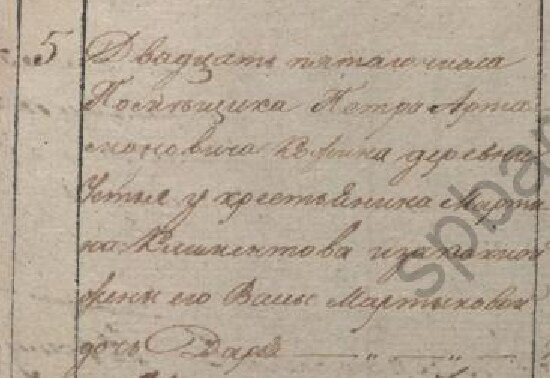 5 Двадцать пятаго числа
Помѣщика Петра Арта
моновича Кожина деревни
Устья у крестьянина Марты
на Климентова и законной
жены его Вассы Мартыновой
дочь Дарья
spba